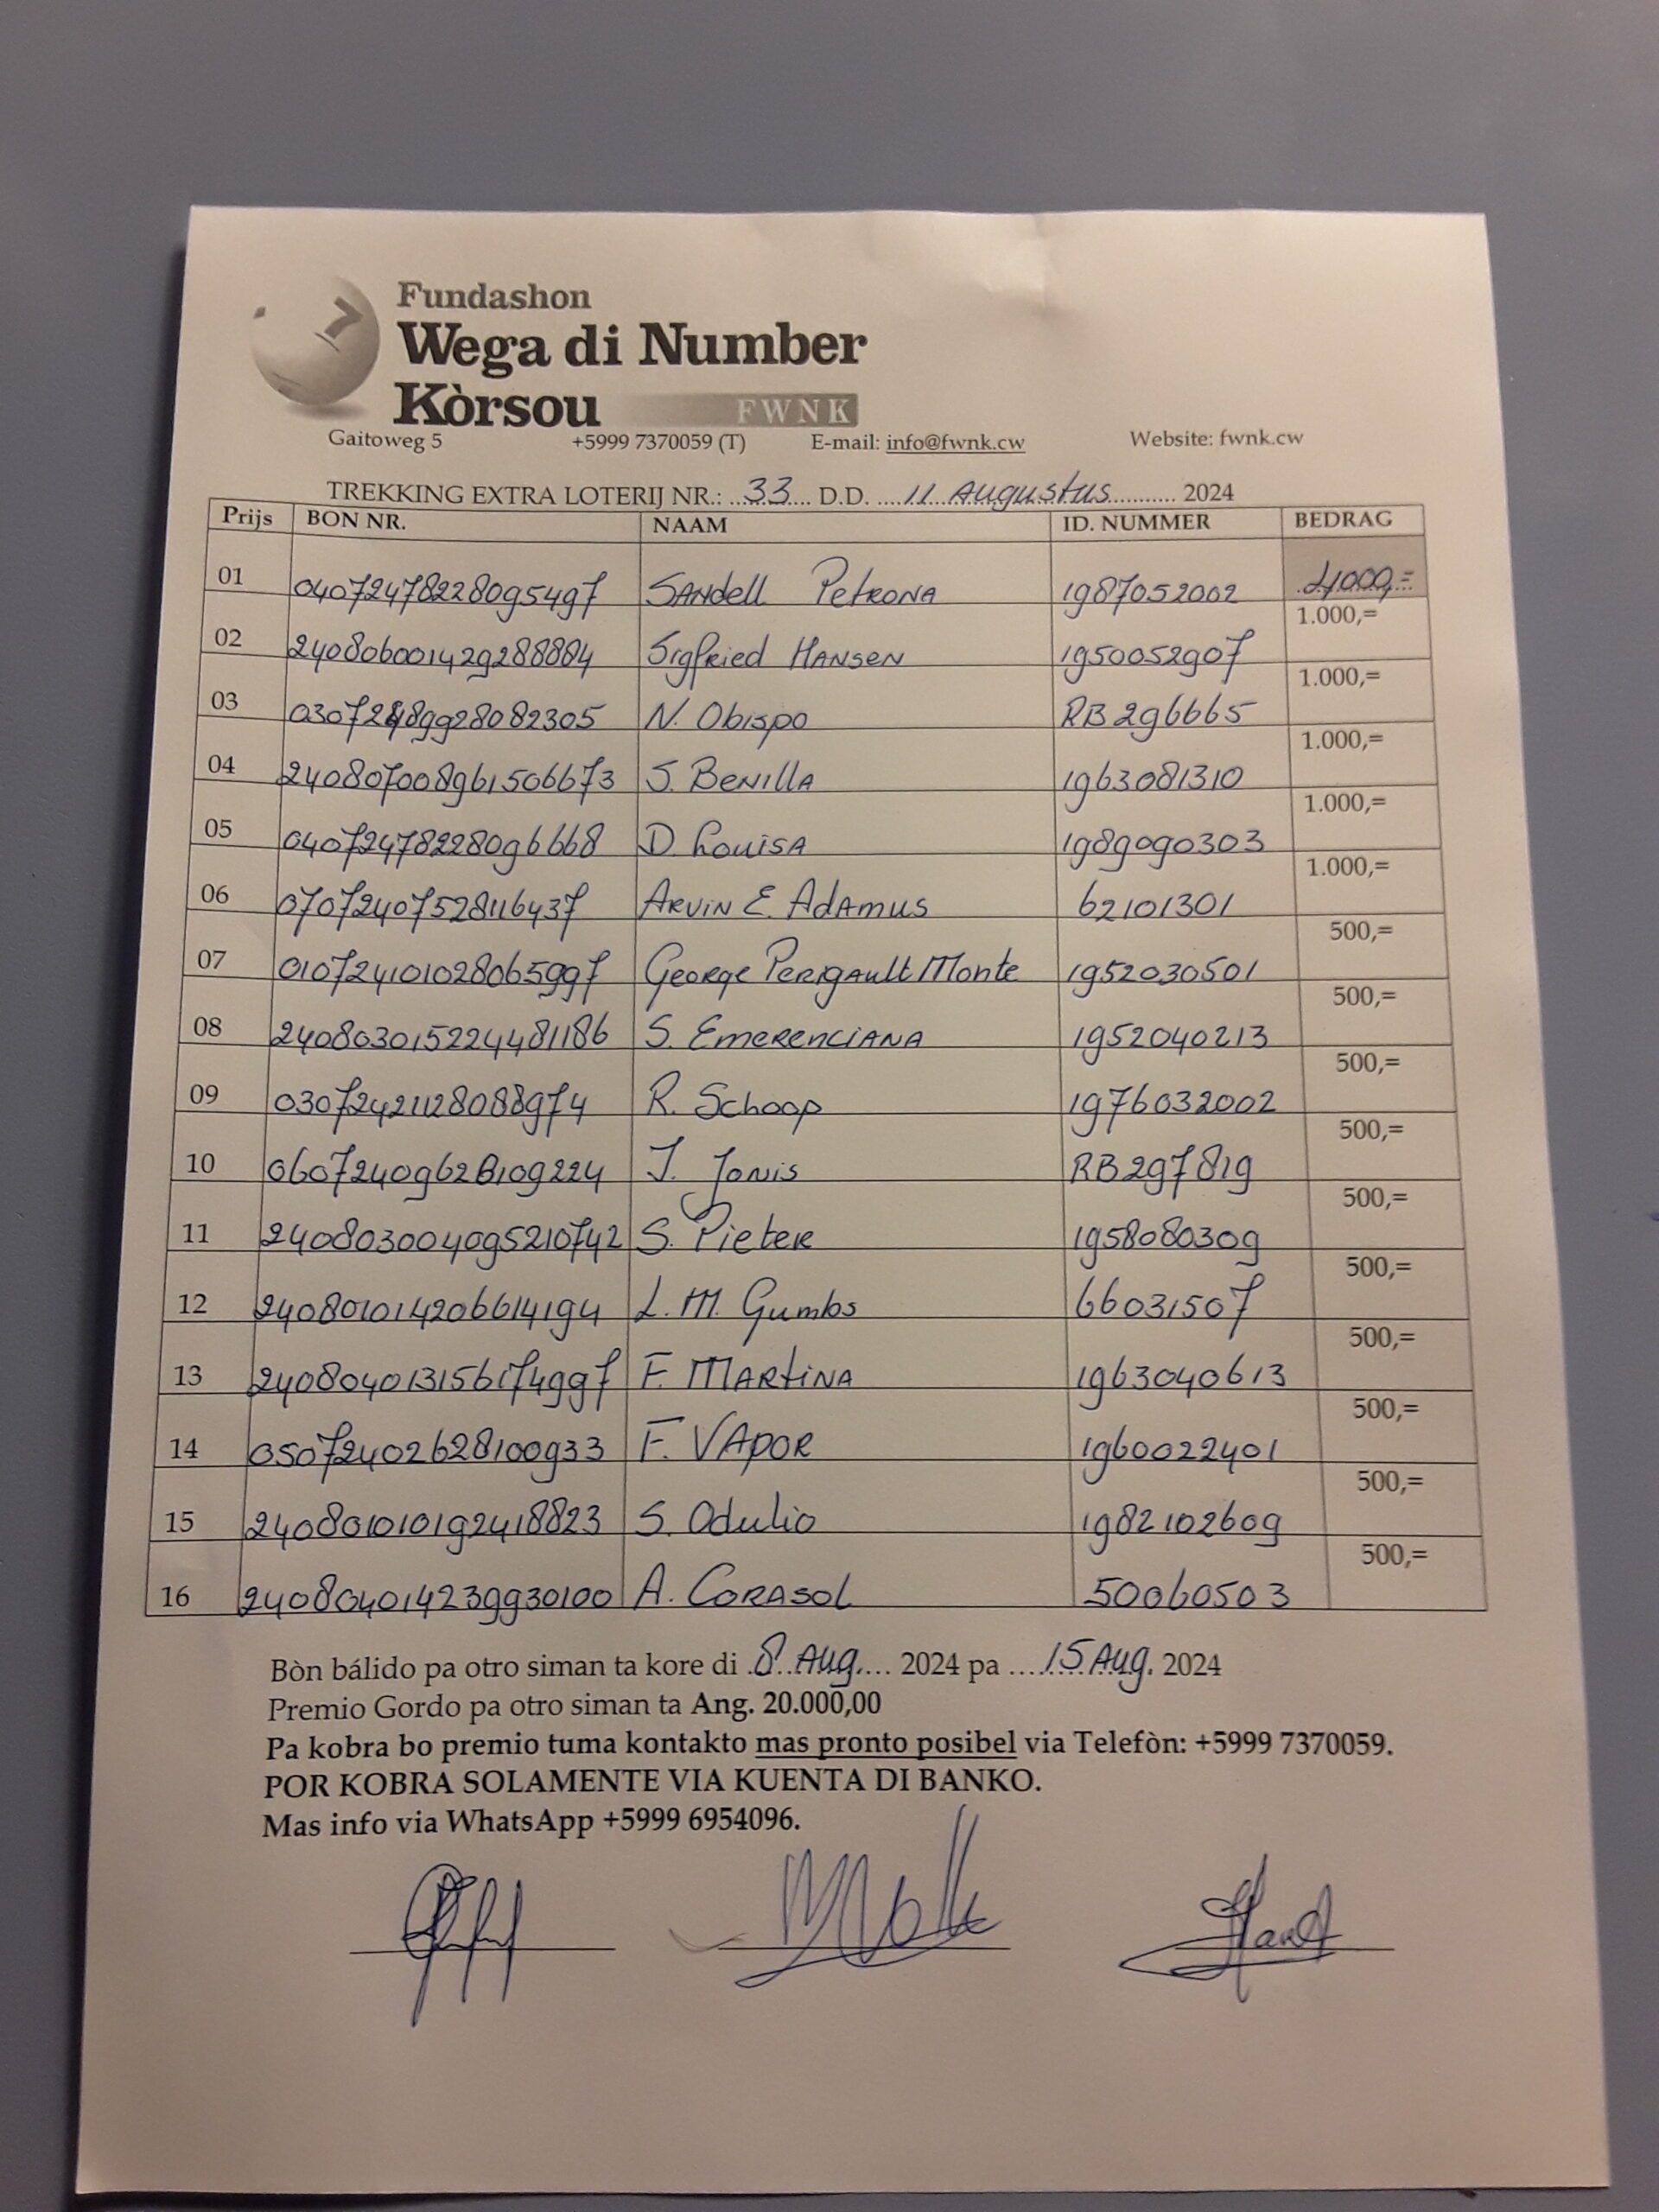 7
Fundashon
Wega di Number
Kòrsou FWNK
Gaitoweg 5 +5999 7370059 (T) E-mail: info@fwnk.cw Website: fwnk.cw
TREKKING EXTRA LOTERIJ NR.: 33 D.D. 11 Augustus 2024
Prijs BON NR. NAAM ID. NUMMER BEDRAG
01 04072478228095497 Sandell Petrona 1987052002 4000,=
02 240806001429288884 Sigfried Hansen 1950052907 1.000,=
03 N. Obispo RB296665 1.000,=
04 240807008961506673 S. Benilla 1963081310 1.000,=
05 04072478228096668 D Louisa 1989090303 1.000,=
06 07072407528116437 Arvin E. Adamus 62101301 1.000,=
07 010724101028065997 George Perigault Monte 1952030501 500,=
08 240803015224481186 S. Emerenciana 1952040213 500,=
09 03072421128088974 R. Schoop 1976032002 500,=
10 06072409628109224 J. Jonis RB297819 500,=
11 240803004095210742 S. Pieter 1958080309 500,=
12 240801014206614194 L.M. Gumbs 66031507 500,=
13 240804013156174997 F. Martina 1963040613 500,=
14 05072402628100933 F. Vapor 1960022401 500,=
15 240801010192418823 S. Odulio 1982102609 500,=
16 240804014239930100 A. Corasol 50060503 500,=
Bòn bálido pa otro siman ta kore di 8 Aug. 2024 pa 15 Aug. 2024
Premio Gordo pa otro siman ta Ang. 20.000,00
Pa kobra bo premio tuma kontakto mas pronto posibel via Telefòn: +5999 7370059.
POR KOBRA SOLAMENTE VIA KUENTA DI BANKO.
Mas info via WhatsApp +5999 6954096.